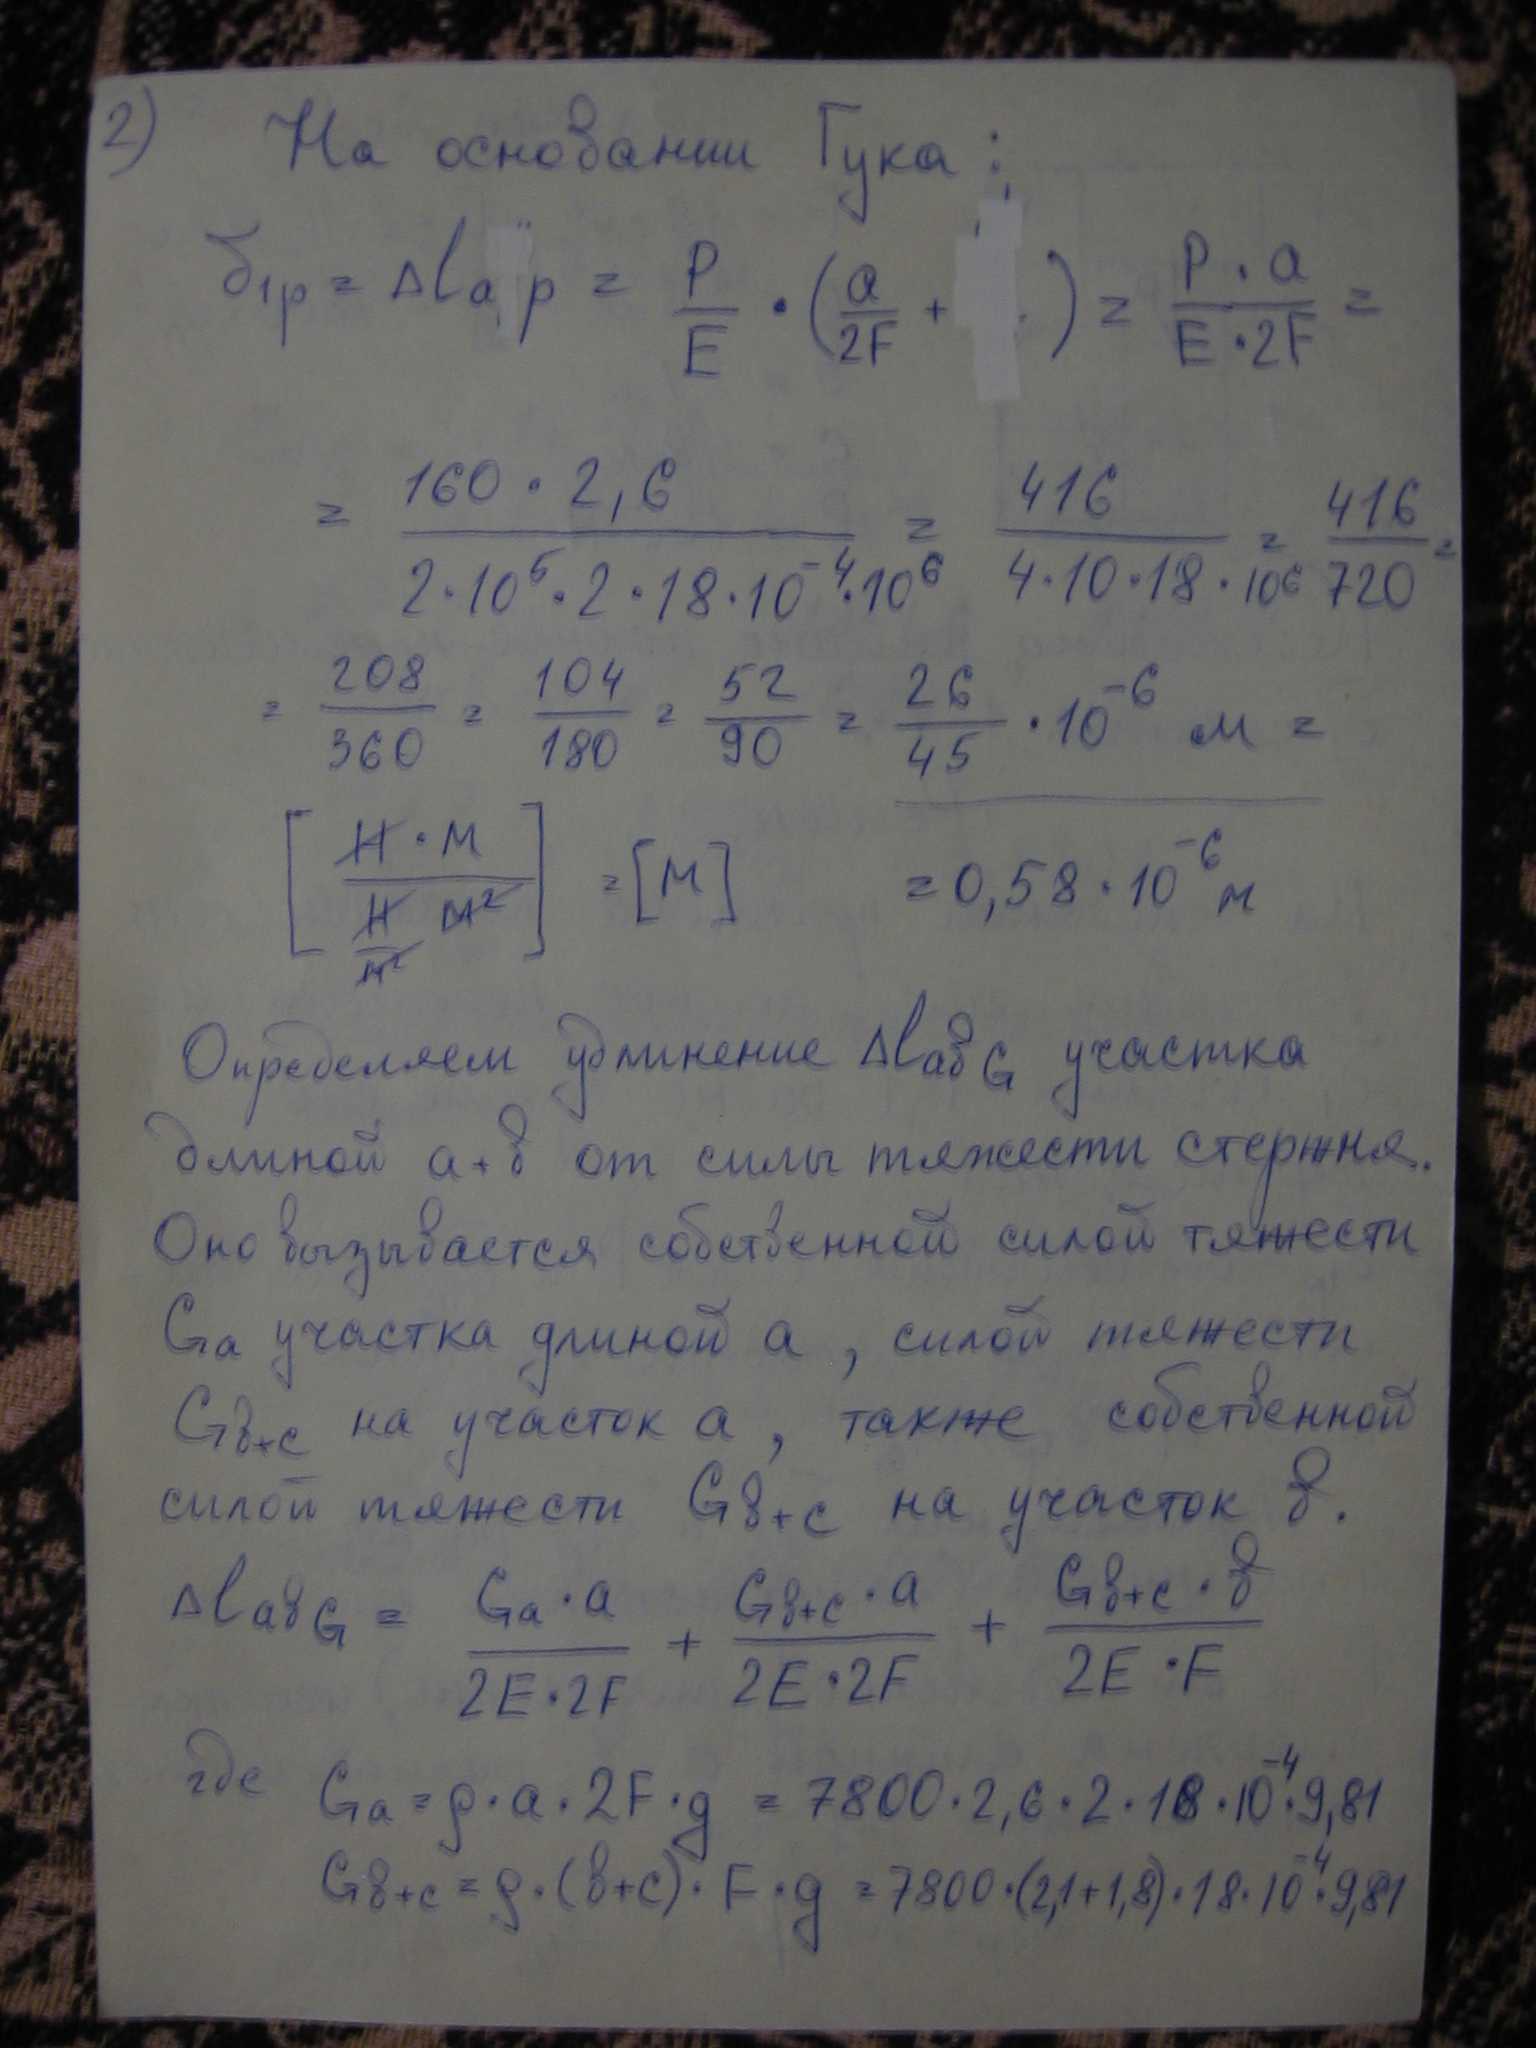 2) На основании Гука:
δ1p = Δla p = P/E · (a/2F + ) = P · a / E · 2F =
= 160 · 2,6 / 2·10⁵·2·18·10⁻⁴·10⁶ = 416 / 4·10·18·10⁶ = 416/720 =
= 208/360 = 104/180 = 52/90 = 26/45 · 10⁻⁶ м =
[Н·м / Н/м² м²] = [м] = 0,58·10⁻⁶ м
Определяем удлинение ΔlaвG участка
длиной a+в от силы тяжести стержня.
Оно вызывается собственной силой тяжести
Ga участка длиной a, силой тяжести
Gв+c на участок a, также собственной
силой тяжести Gв+c на участок в.
ΔlaвG = Ga·a / 2E·2F + Gв+c·a / 2E·2F + Gв+c·в / 2E·F
где Ga = ρ·a·2F·g = 7800·2,6·2·18·10⁻⁴·9,81
Gв+c = ρ·(в+c)·F·g = 7800·(2,1+1,8)·18·10⁻⁴·9,81